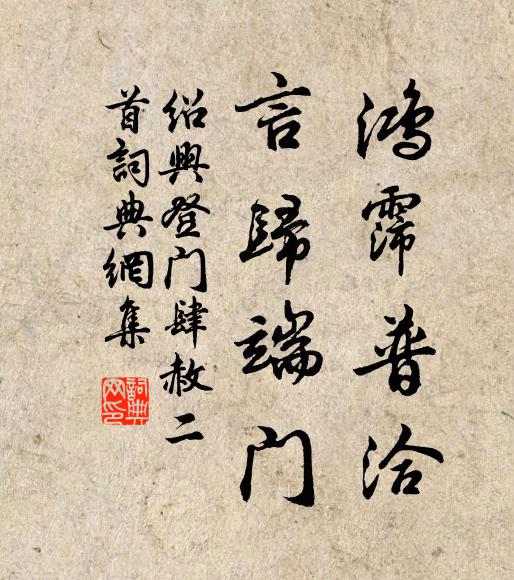 鴻霈普洽
言歸端门
绍興登门肆赦二
首詞典網集
詞典
网印